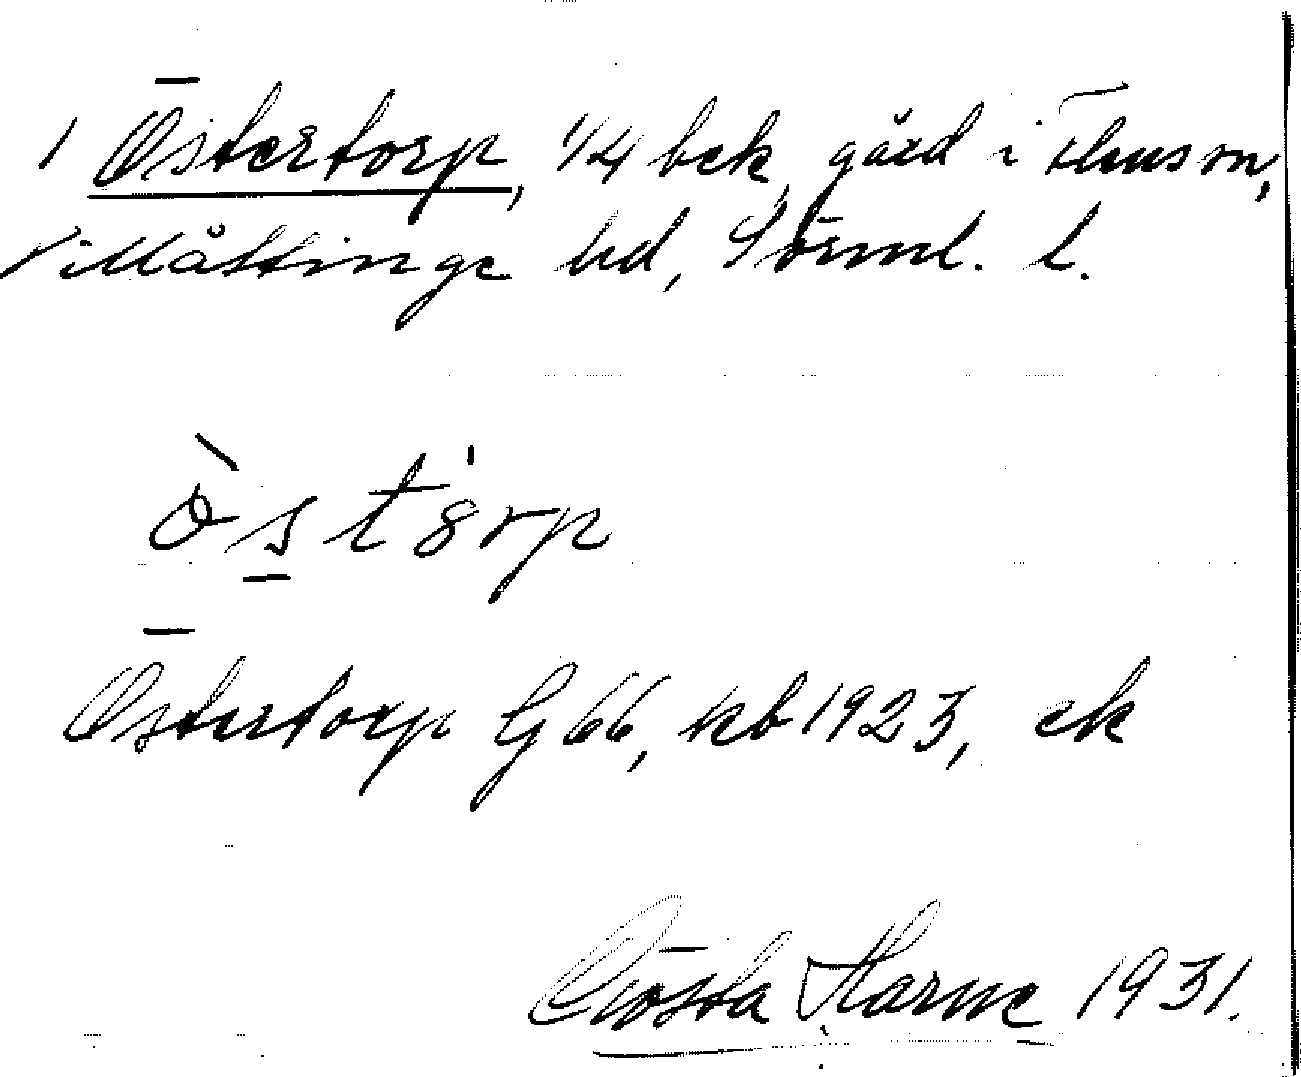 1 Östertorp, 1/4 bek, gård i Flens sn,
Villåttinge hd, Sörml. l.
òstörp
Östertorp G 66, kb 1923, ek
Gösta Harne 1931.